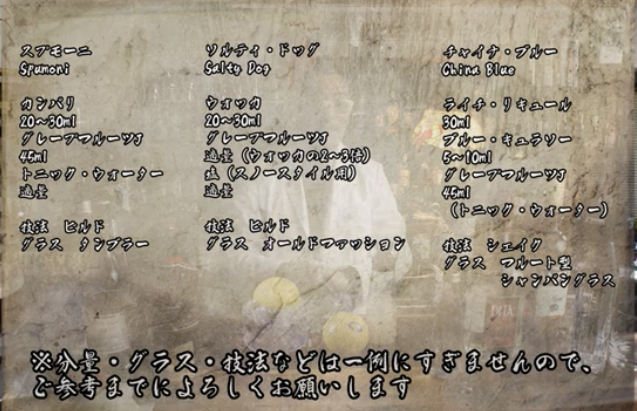 スプモーニ
Spumoni
カンパリ
20～30ml
グレープフルーツJ
45ml
トニック・ウォーター
適量
技法　ビルド
グラス　タンブラー
ソルティ・ドッグ
Salty Dog
ウォッカ
20～30ml
グレープフルーツJ
適量（ウォッカの2～3倍）
塩（スノースタイル用）
適量
技法　ビルド
グラス　オールドファッション
チャイナ・ブルー
China Blue
ライチ・リキュール
30ml
ブルー・キュラソー
5～10ml
グレープフルーツJ
45ml
（トニック・ウォーター）
技法　シェイク
グラス　フルート型
シャンパングラス
※分量・グラス・技法などは一例にすぎませんので、
ご参考までによろしくお願いします